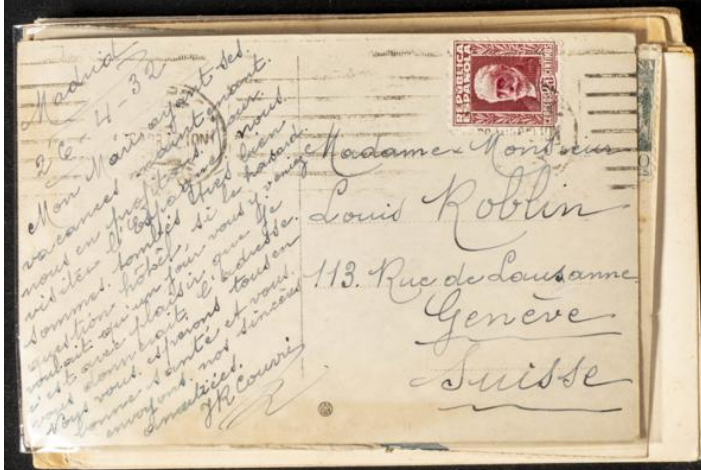 Madrid
26-4-32
Mon Mari ayant ses
vacances maintenant
nous en profitons pour
visiter l'Espagne nous
sommes tombés très bien
question hôtel, si le hasard
voulait qu'un jour vous y veniez
c'est avec plaisir que je
vous donnerait l'adresse.
Nous vous espérons tous en
bonne santé et vous
envoyons nos sincères
amitiées.
JR Courvi
REPUBLICA
ESPAÑOLA
25 CENTIMOS
Madame Monsieur
Louis Roblin
113. Rue de Lausanne
Genève
Suisse